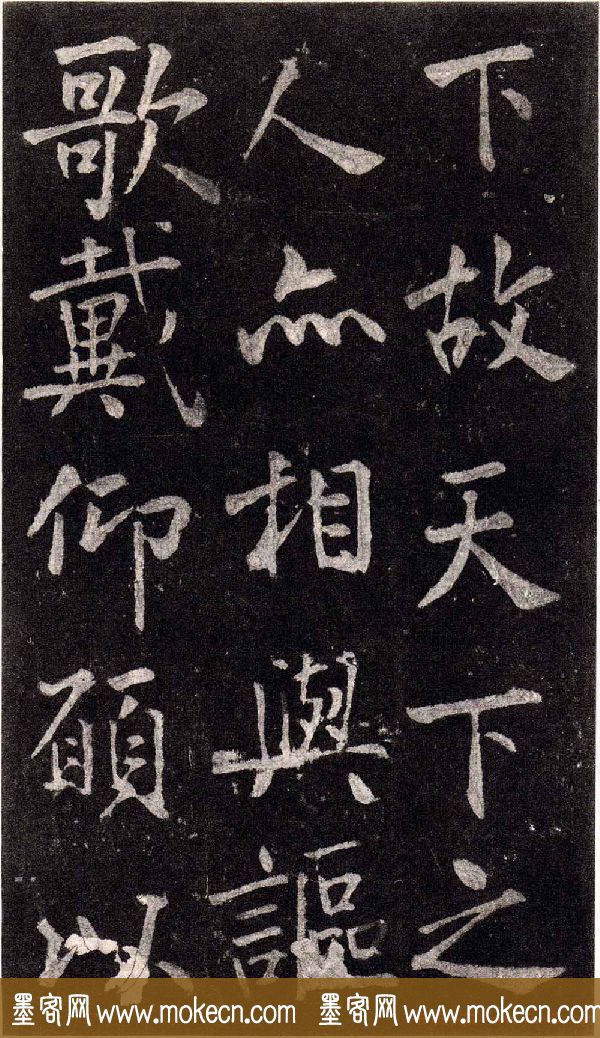 下故天下之
人亦相與謳
歌戴仰願以
墨客网 www.mokecn.com 墨客网 www.mokecn.com